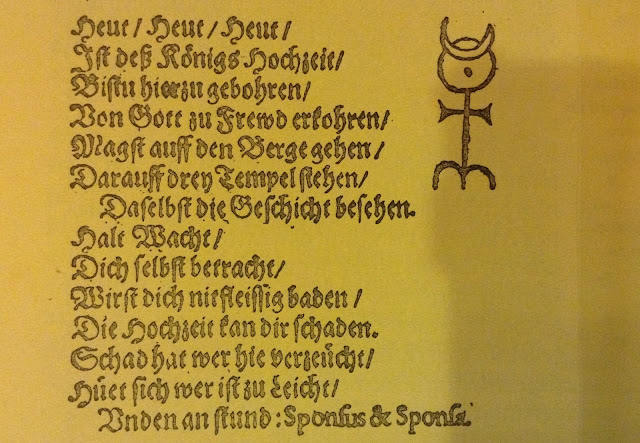 Heut / Heut / Heut /
Ist deß Königs Hochzeit /
Bistu hierzu gebohren /
Von Gott zu Frewd erkohren /
Magst auff den Berge gehen /
Darauff drey Tempel stehen /
Daselbst die Geschicht besehen.
Halt Wacht /
Dich selbst betracht /
Wirst dich nit fleissig baden /
Die Hochzeit kan dir schaden.
Schad hat wer hie verzeücht /
Hüet sich wer ist zu Leicht /
Vnden an stund : Sponsus & Sponsa.